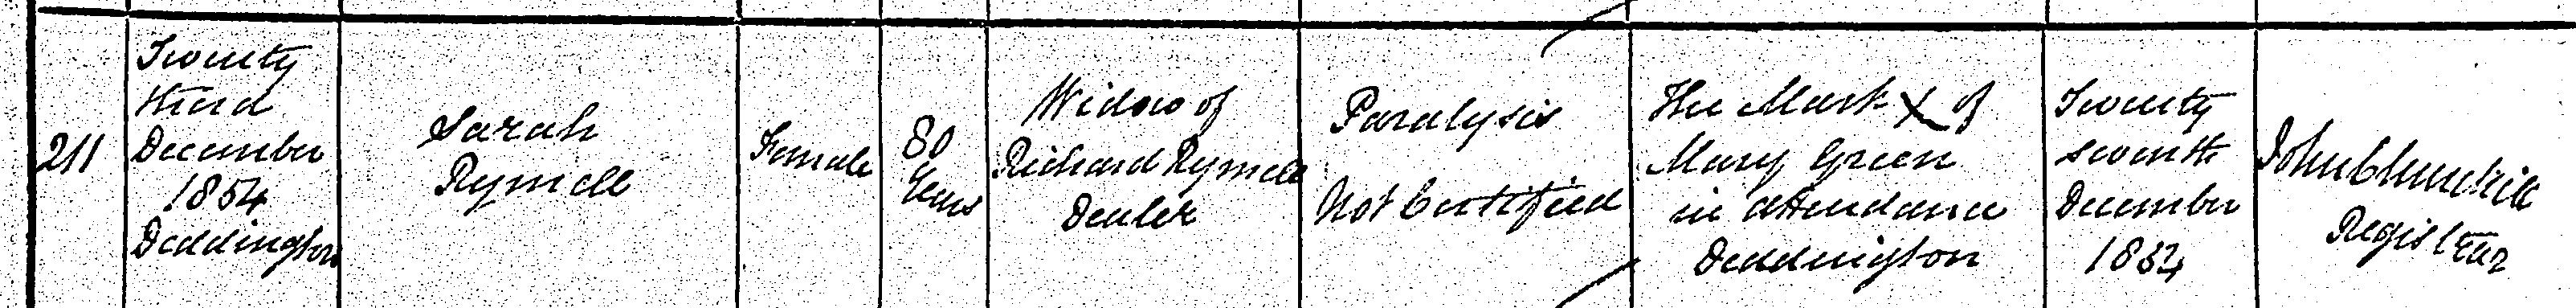 211
Twenty
third
December
1854
Deddington
Sarah
Rymell
Female
80
Years
Widow of
Richard Rymell
Dealer
Paralysis
Not Certified
The Mark X of
Mary Green
in attendance
Deddington
Twenty
seventh
December
1854
John Churchill
Registrar